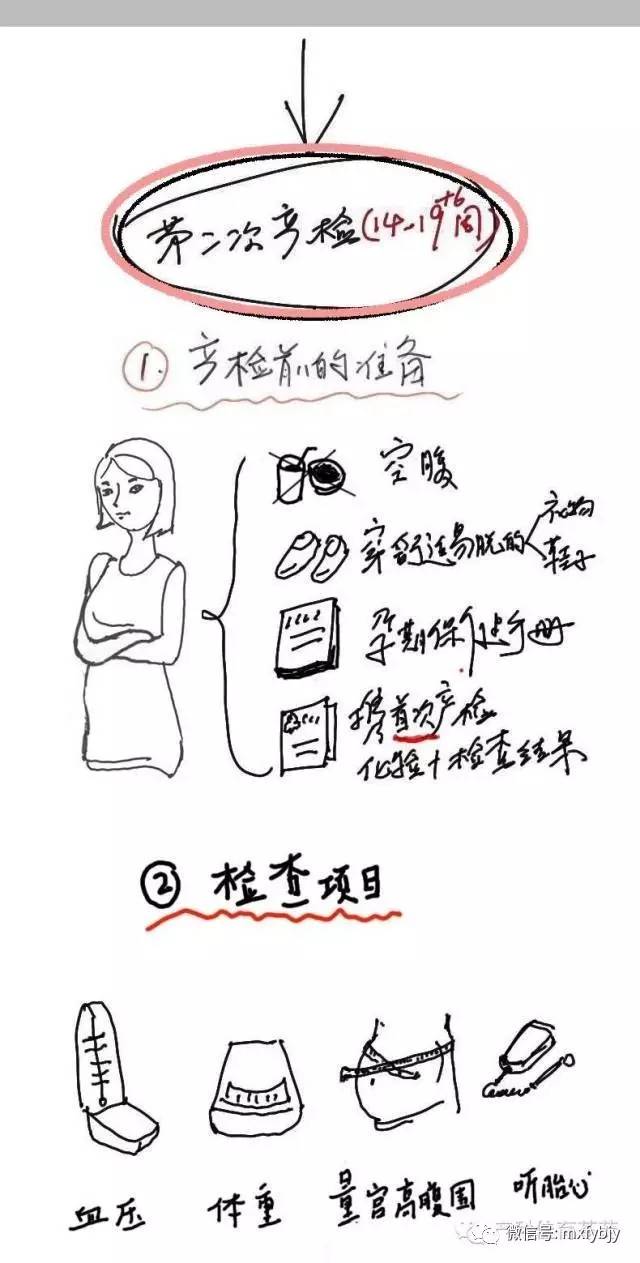 第二次产检(14-19+6周)
①. 产检前的准备
空腹
穿舒适易脱的
衣物
鞋子
孕期保健手册
携首次产检
化验+检查结果
② 检查项目
血压
体重
量宫高腹围
听胎心
微信号: mxfybjy